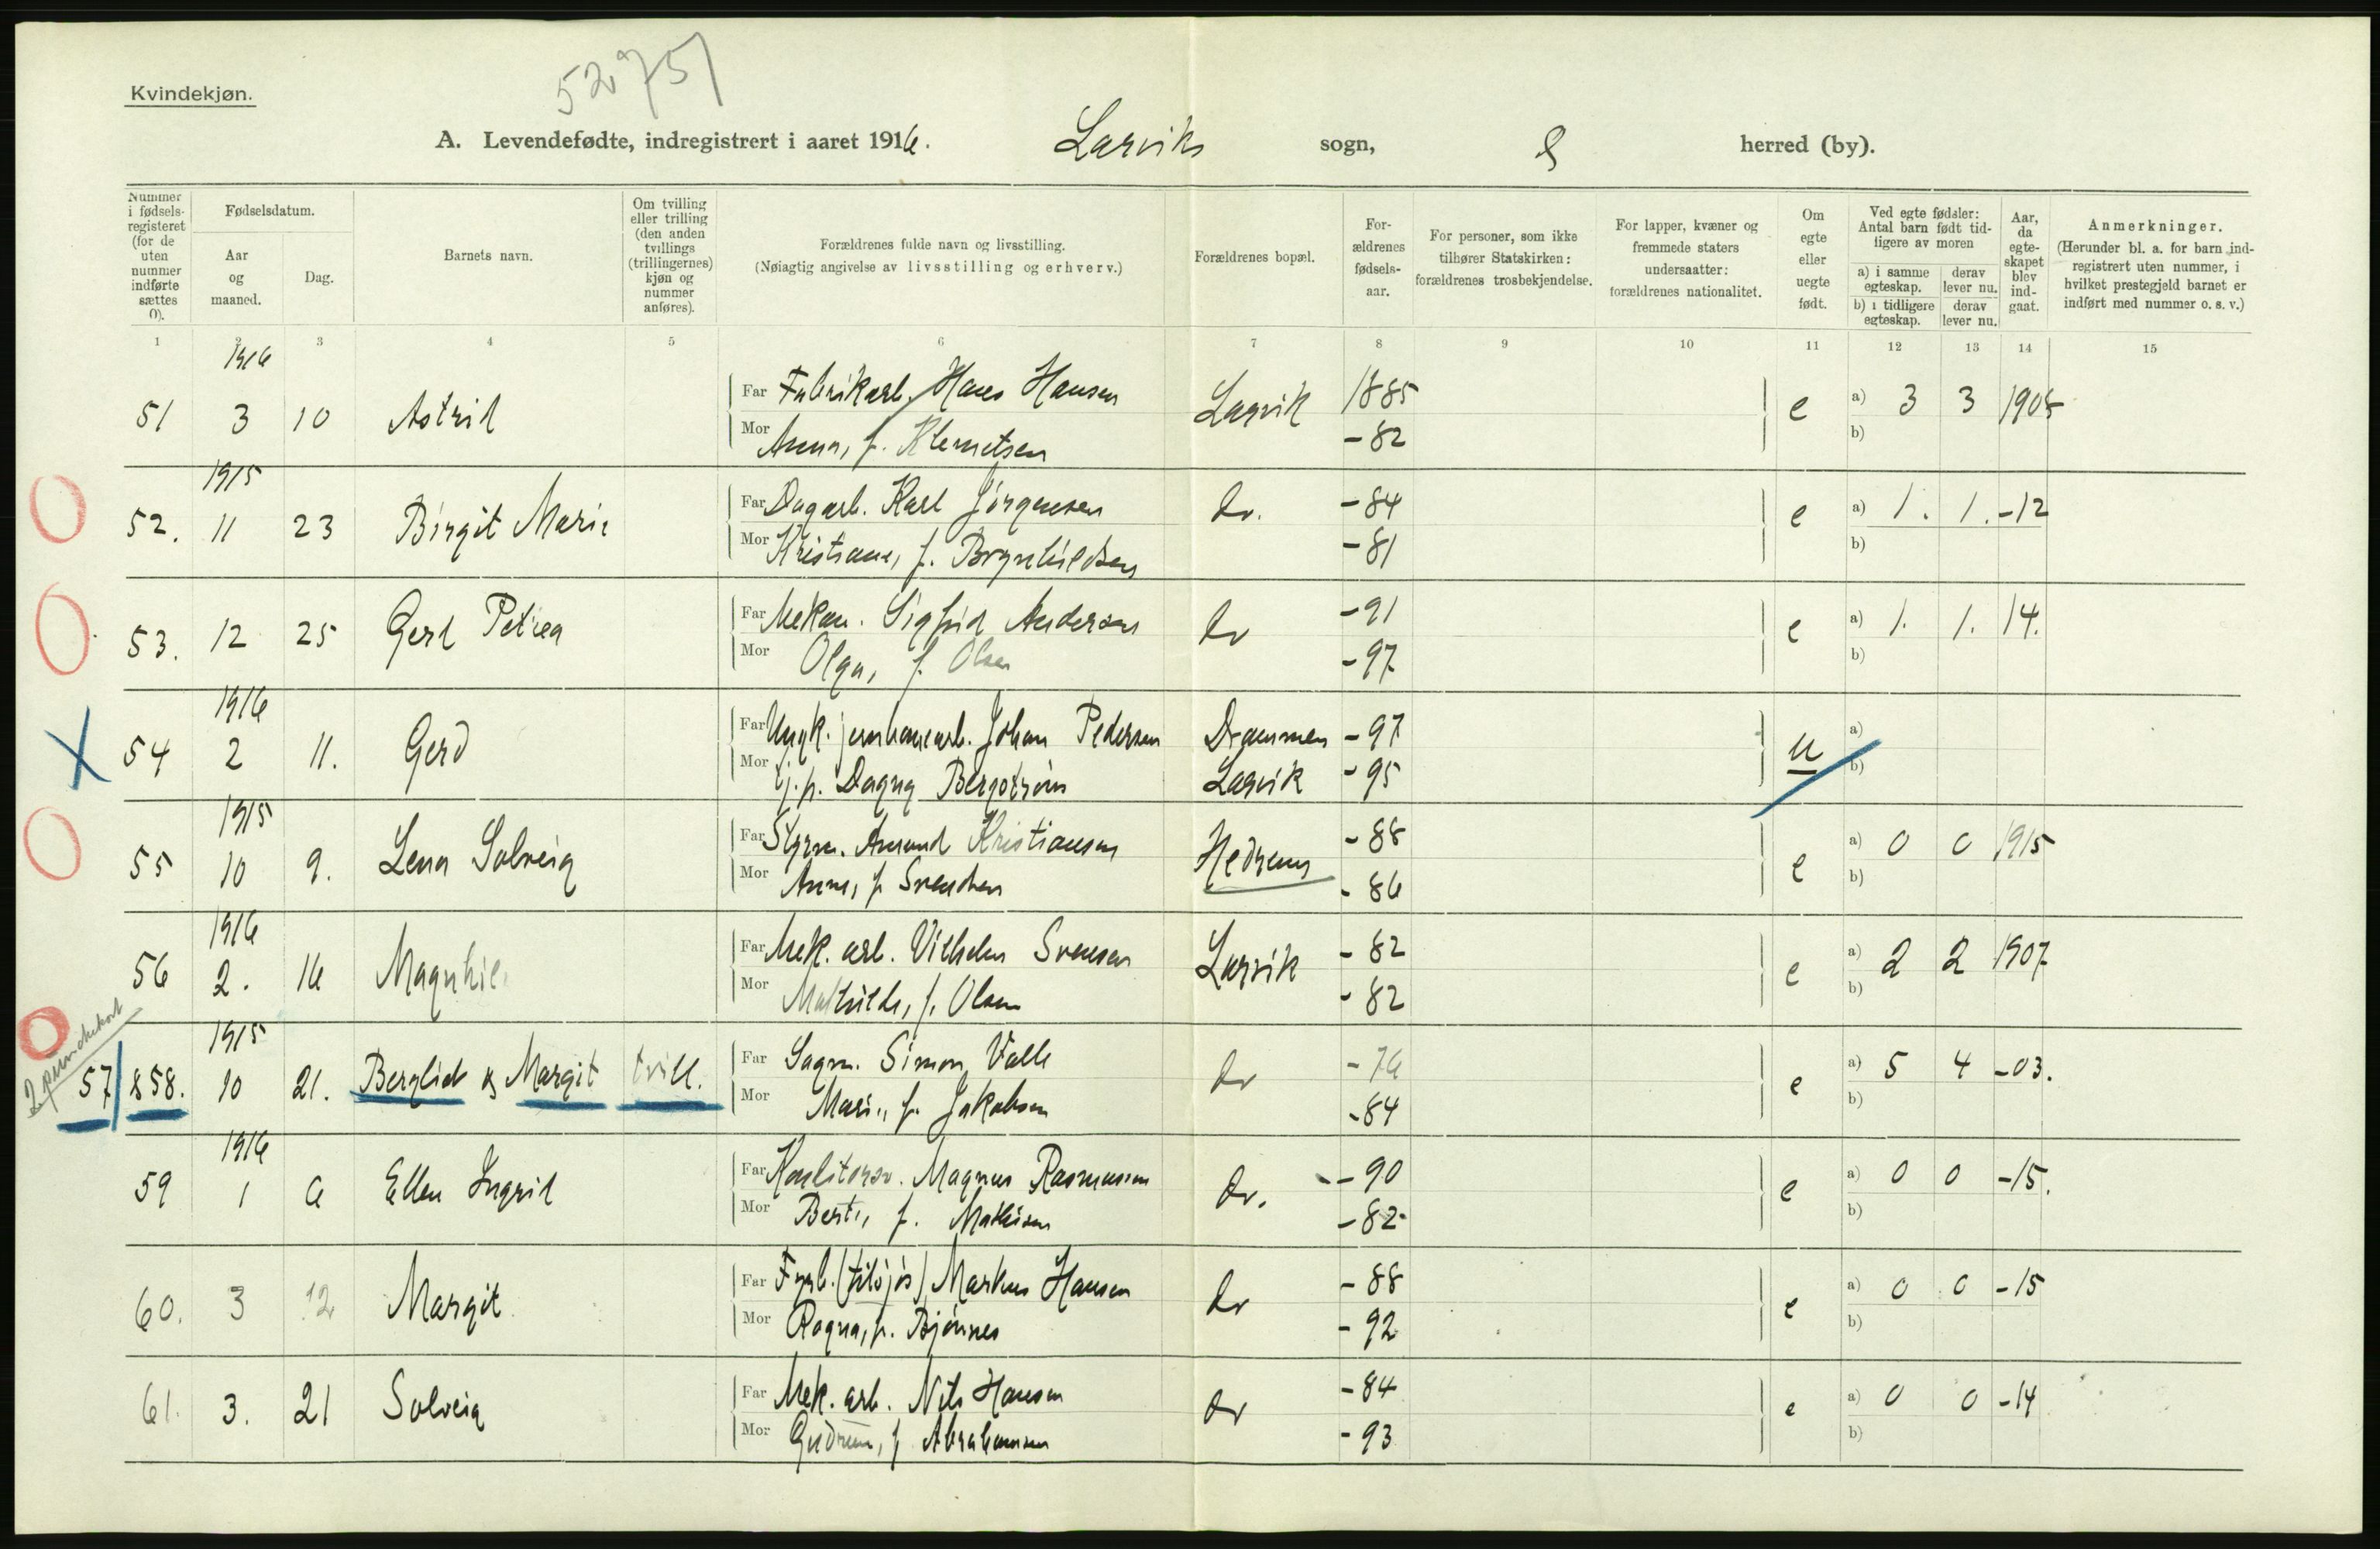 52751
Kvindekjøn.
A. Levendefødte, indregistrert i aaret 1916. Larviks sogn, & herred (by).
Nummer i fødselsregisteret (for de uten nummer indførte sættes 0).
Fødselsdatum.
Aar og maaned.
Dag.
Barnets navn.
Om tvilling eller trilling (den anden tvillings (trillingernes) kjøn og nummer anføres).
Forældrenes fulde navn og livsstilling.
(Nøiagtig angivelse av livsstilling og erhverv.)
Forældrenes bopæl.
Forældrenes fødselsaar.
For personer, som ikke tilhører Statskirken: forældrenes trosbekjendelse.
For lapper, kvæner og fremmede staters undersaatter: forældrenes nationalitet.
Om egte eller uegte født.
Ved egte fødsler: Antal barn født tidligere av moren
a) i samme egteskap.
derav lever nu.
b) i tidligere egteskap.
derav lever nu.
Aar, da egteskapet blev indgaat.
Anmerkninger.
(Herunder bl. a. for barn indregistrert uten nummer, i hvilket prestegjeld barnet er indført med nummer o. s. v.)
1 2 3 4 5 6 7 8 9 10 11 12 13 14 15
1916
51 3 10 Astrid Far Fabrikarb. Hans Hansen Larvik 1885 e a) 3 3 1905
Mor Anna, f. Klemetsen -82 b)
1915
52. 11 23 Birgit Marie Far Dagarb. Karl Jörgensen do. -84 e a) 1. 1. -12
Mor Kristiane, f. Brynhildsen -81 b)
53. 12 25 Gerd Petrea Far Mekan. Sigfrid Andersen do -91 e a) 1. 1. 14.
Mor Olga, f. Olsen -97 b)
1916
54 2 11. Gerd Far Ungk. jernbanearb. Johan Pedersen Drammen -97 u a)
Mor Pj.p. Dagny Bergström Larvik -95 b)
1915
55 10 9. Lena Solveig Far Styrm. Amund Kristiansen Hedrum -88 e a) 0 0 1915
Mor Anna, f. Svendsen -86 b)
1916
56 2. 16 Magnhil Far Mek. arb. Vilhelm Svensen Larvik -82 e a) 2 2 1907
Mor Mathilde, f. Olsen -82 b)
2 punchekort
1915
57 & 58. 10 21. Berglid & Margit tvill. Far Sagm. Simon Valle do -76 e a) 5 4 -03.
Mor Marie, f. Jakobsen -84 b)
1916
59 1 6 Ellen Ingrid Far Magnus Rasmussen do. -90 e a) 0 0 -15.
Mor Berte, f. Mathisen -82 b)
60. 3 12 Margit Far Fyrb. (tilsjös) Markus Hansen do -88 e a) 0 0 -15
Mor Ragna, f. Bjönnes -92 b)
61. 3. 21 Solveig Far Mek. arb. Nils Hansen do -84 e a) 0 0 -14
Mor Gudrun, f. Abrahamsen -93 b)